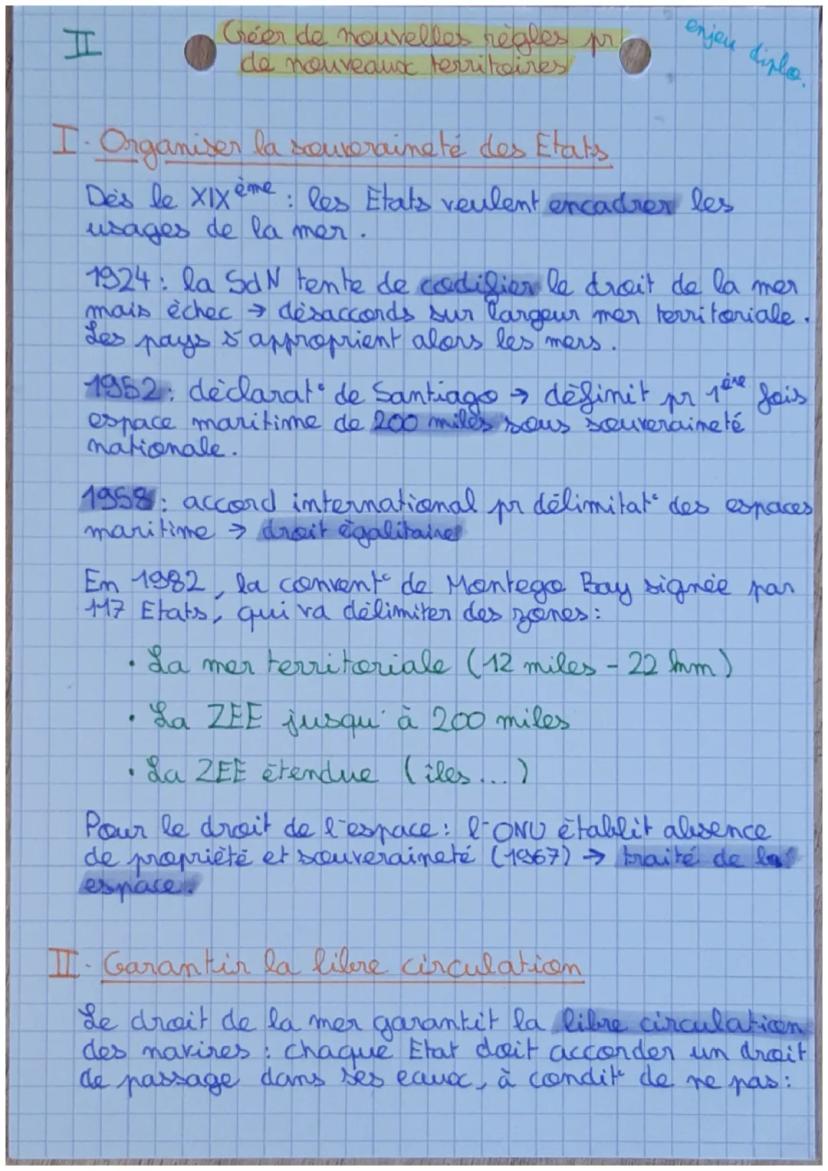 II
Créer de nouvelles règles pr
de nouveaux territoires
enjeu diplo.
I. Organiser la souveraineté des Etats
Dès le XIXème : les Etats veulent encadrer les
usages de la mer.
1924 : la SdN tente de codifier le droit de la mer
mais échec → désaccords sur largeur mer territoriale.
Les pays s'approprient alors les mers.
1952 : déclarat° de Santiago → définit pr 1ère fois
espace maritime de 200 miles sous souveraineté
nationale.
1958 : accord international pr délimitat° des espaces
maritime → droit égalitaire
En 1982, la convent° de Montego Bay signée par
117 Etats, qui va délimiter des zones :
• La mer territoriale (12 miles - 22 km)
• La ZEE jusqu'à 200 miles
• La ZEE étendue (iles...)
Pour le droit de l'espace : l'ONU établit absence
de propriété et souveraineté (1967) → traité de la
espace.
II. Garantir la libre circulation
Le droit de la mer garantit la libre circulation
des navires : chaque Etat doit accorder un droit
de passage dans ses eaux, à condit° de ne pas :